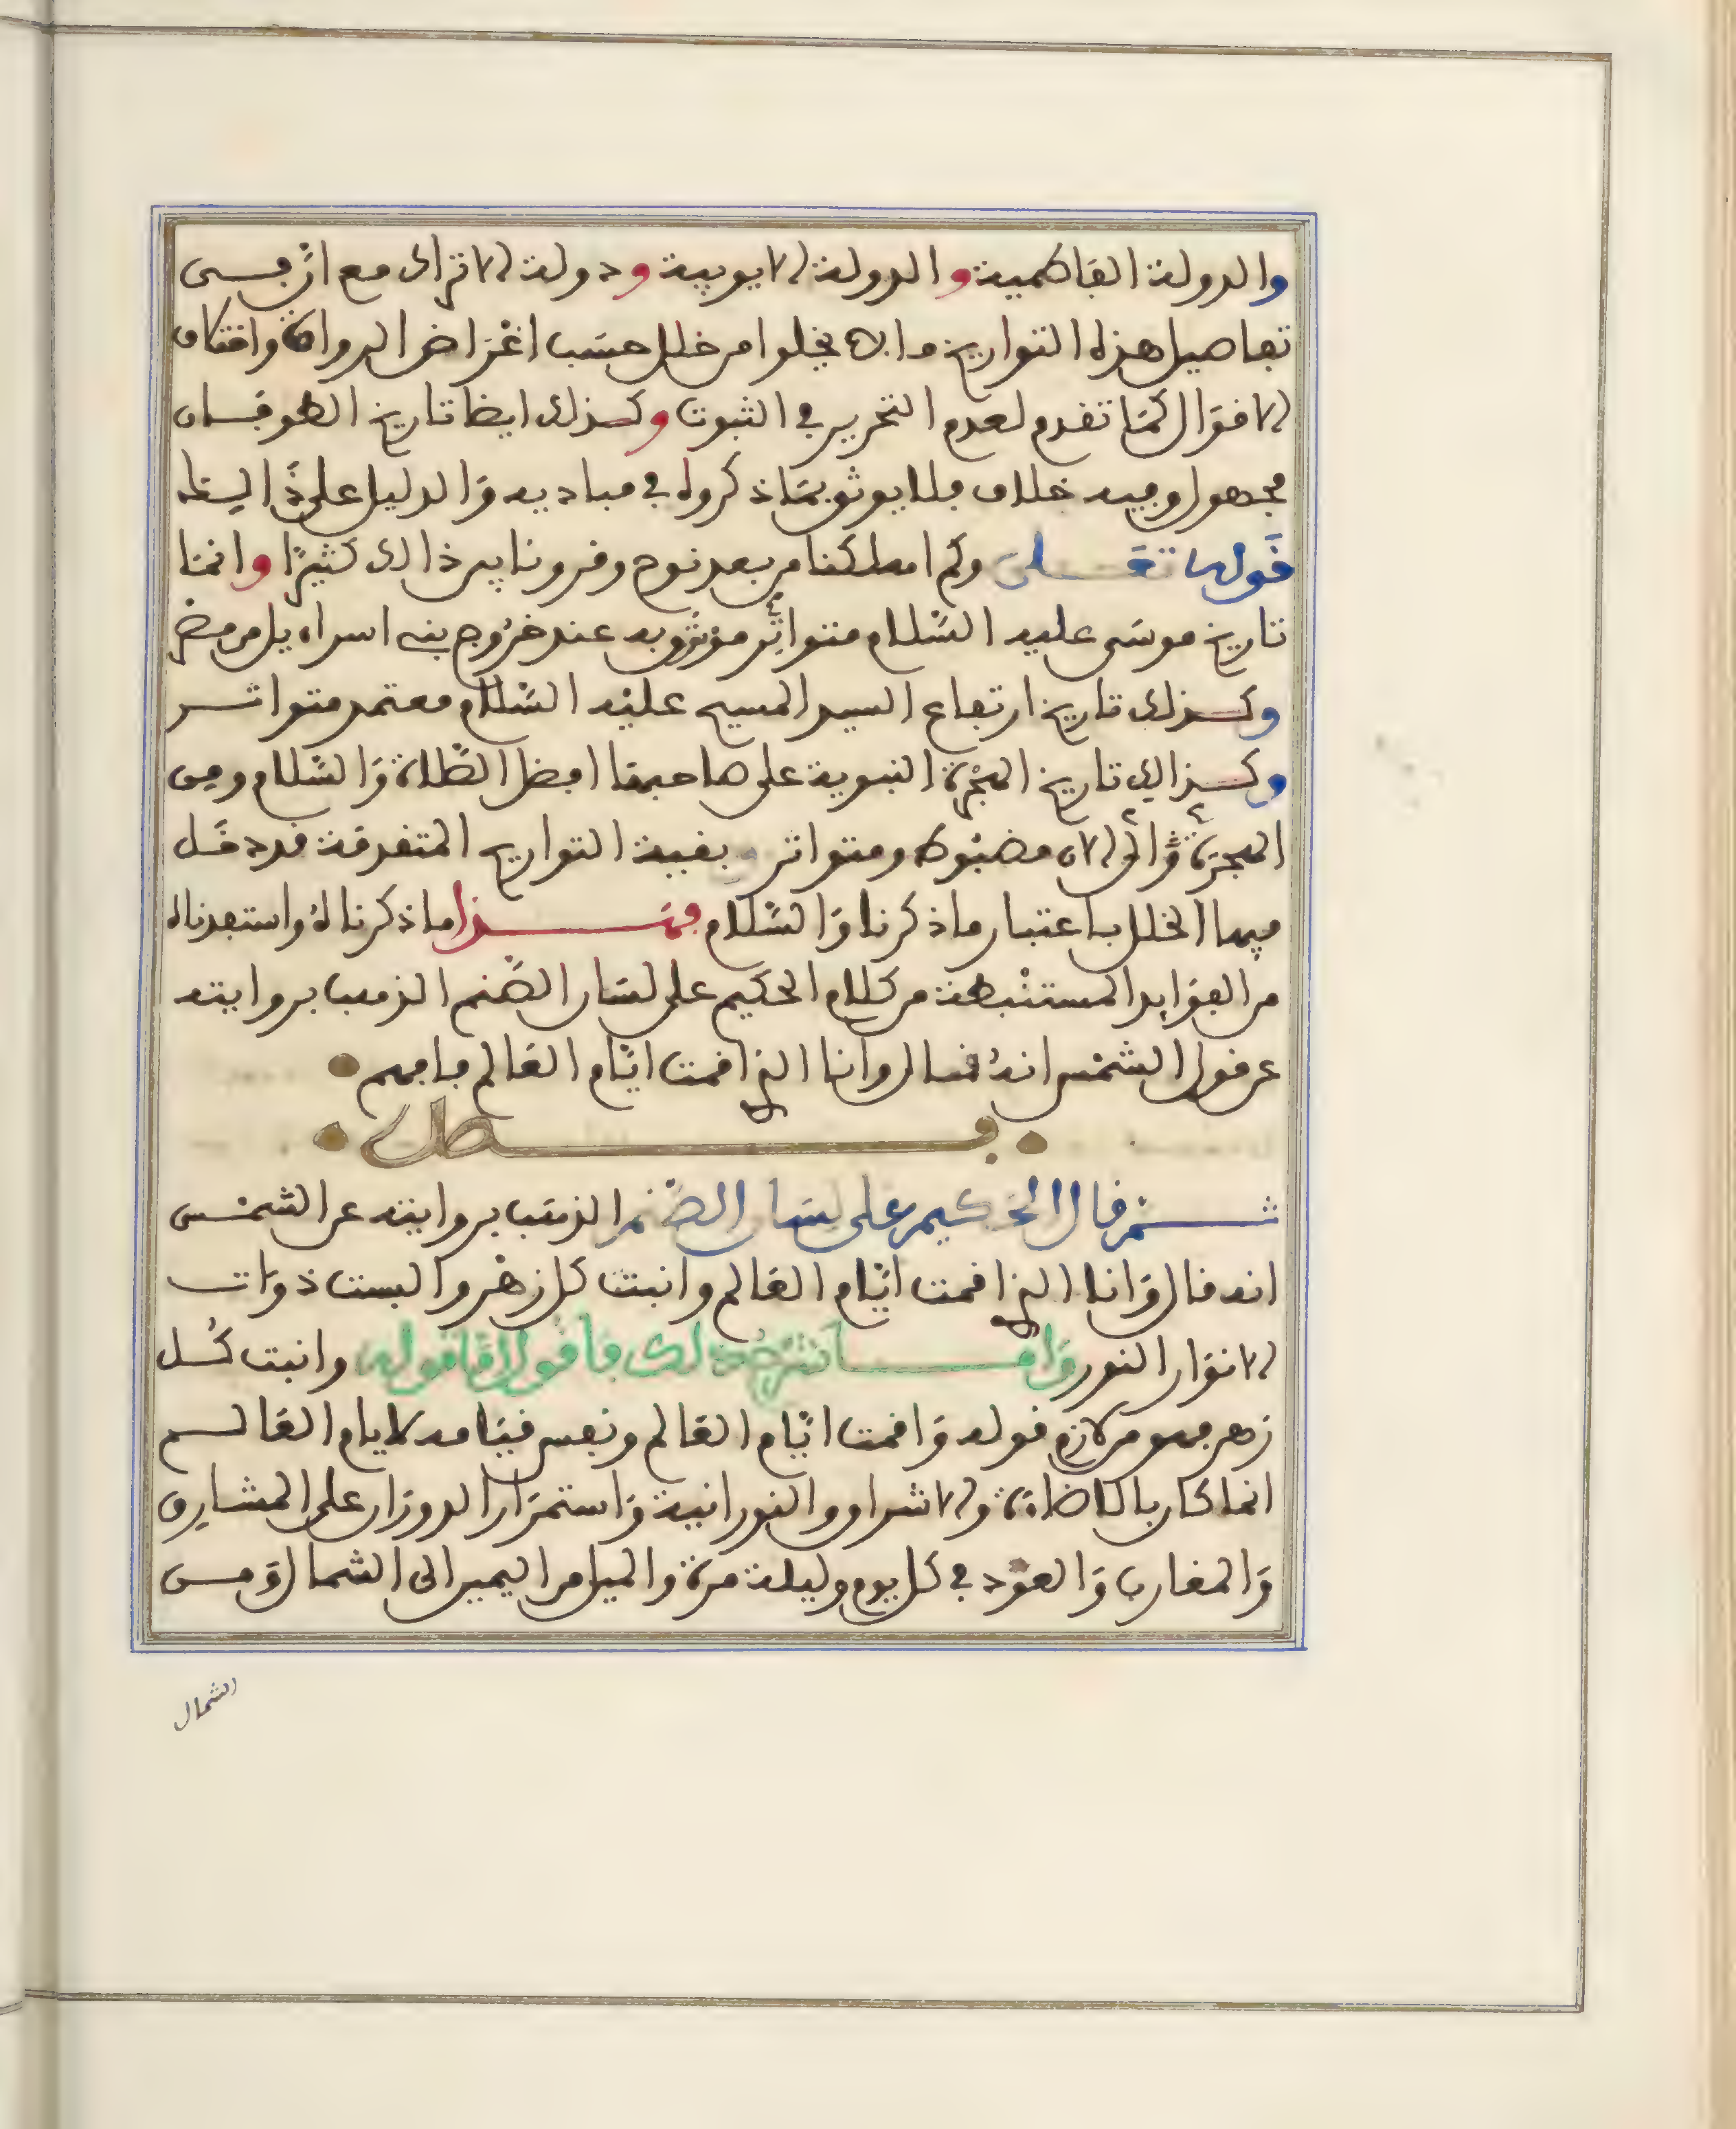 والدولة الفاطمية والدولة الايوبية ودولة الاتراك مع ان في
تفاصيل هذه التواريخ ما لا يخلوا من خلل حسب اغراض الرواة واختلاف
الاقوال كما تقدم لعدم التحرير في الثبوت وكذلك ايضا تاريخ الطوفان
مجهول وفيه خلاف فلا يوثق بما ذكروه في مباديه والدليل على ذالك
قوله تعلى وكم اهلكنا من بعد نوح وقرونا بين ذالك كثيرًا وانما
تاريخ موسى عليه السّلام متواتر موثوق به عند خروج بني اسراءيل من مصر
وكذلك تاريخ ارتفاع السيد المسيح عليه السّلام معتمد متواتر
وكذالك تاريخ الهجرة النبوية على صاحبها افضل الصّلاة والسّلام ومن
الهجرة والى الان مضبوط ومتواتر وبقية التواريخ المتفرقة قد دخل
فيها الخلل باعتبار ما ذكرنا والسّلام فهذا ما ذكرناه واستفدناه
من الفوايد المستنبطة من كلام الحكيم على لسان الصّنم الذهب بروايته
عن قول الشمس انه قال وانا الذي اقمت ايّام العالم فافهم
فصل
ثم قال الحكيم على لسان الصنم الذهب بروايته عن الشمس
انه قال وانا الذي اقمت ايّام العالم وانبت كل زهر والبست ذوات
الانوار النور وانا نشرح ذلك فاقول اما قوله وانبت كل
زهر فهو من لازم قوله واقمت ايّام العالم ونفس قيامه لايام العالم
انما كان بالاضاءة والاشراق والنورانية واستمرار الدوران على المشارق
والمغارب والعود في كل يوم وليلة مرة والميل من اليمين الى الشمال ومن
الشمال